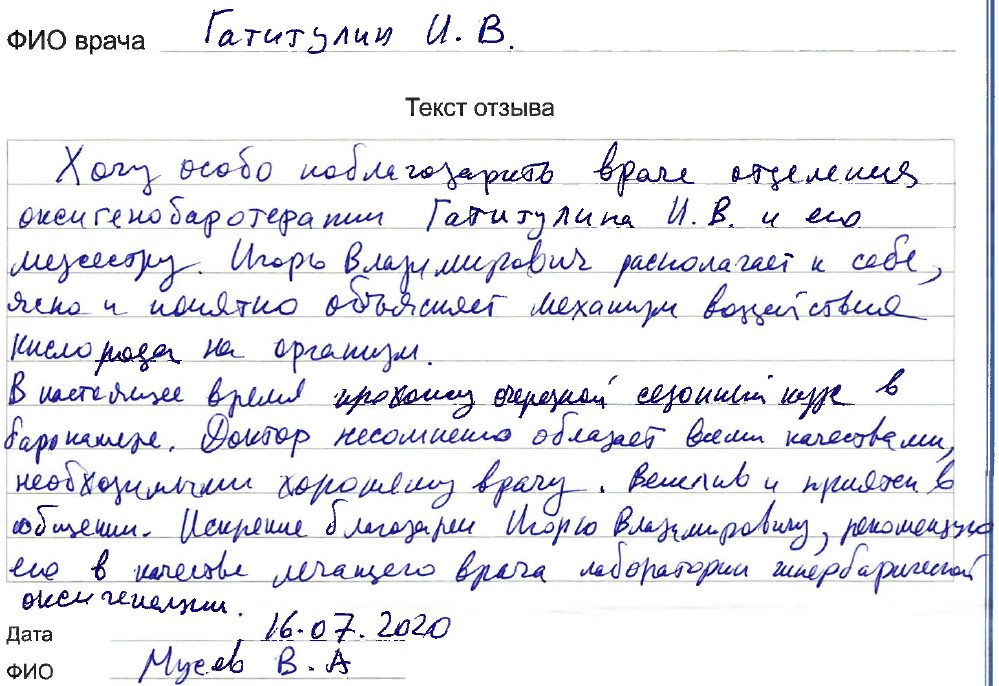 ФИО врача Гатитулин И. В.
Текст отзыва
Хочу особо поблагодарить врача отделения
оксигенобаротерапии Гатитулина И. В. и его
медсестру. Игорь Владимирович располагает к себе,
ясно и понятно объясняет механизм воздействия
кислорода на организм.
В настоящее время прохожу очередной сезонный курс в
барокамере. Доктор несомненно обладает всеми качествами,
необходимыми хорошему врачу. Вежлив и приятен в
общении. Искренне благодарен Игорю Владимировичу, рекомендую
его в качестве лечащего врача лаборатории гипербарической
оксигенации.
Дата 16.07.2020
ФИО Мусаев В. А